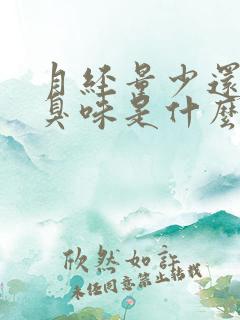 月经量少还
臭味是什么
欣然如許
未经同意禁止转载